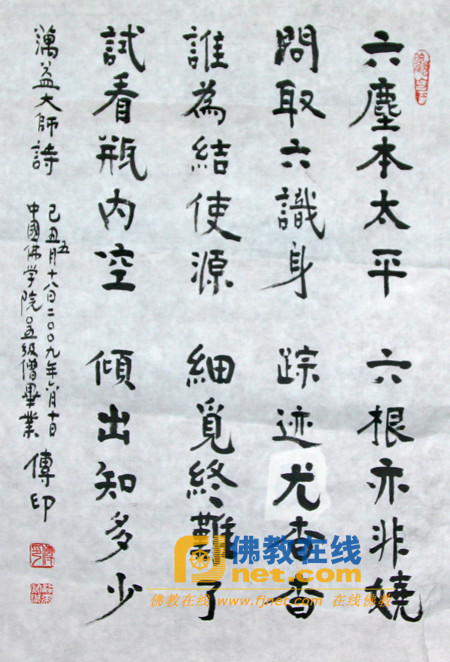 六塵本太平 六根亦非嬈
問取六識身 踪迹尤杳杳
誰為結使源 細覓終難了
試看瓶内空 傾出知多少
蕅益大師詩
己丑五月十八日二〇〇九年六月十日
中國佛学院级僧畢業 傳印
佛教在线
fjnet.com
佛教在线 www.fjnet.com 在线佛教